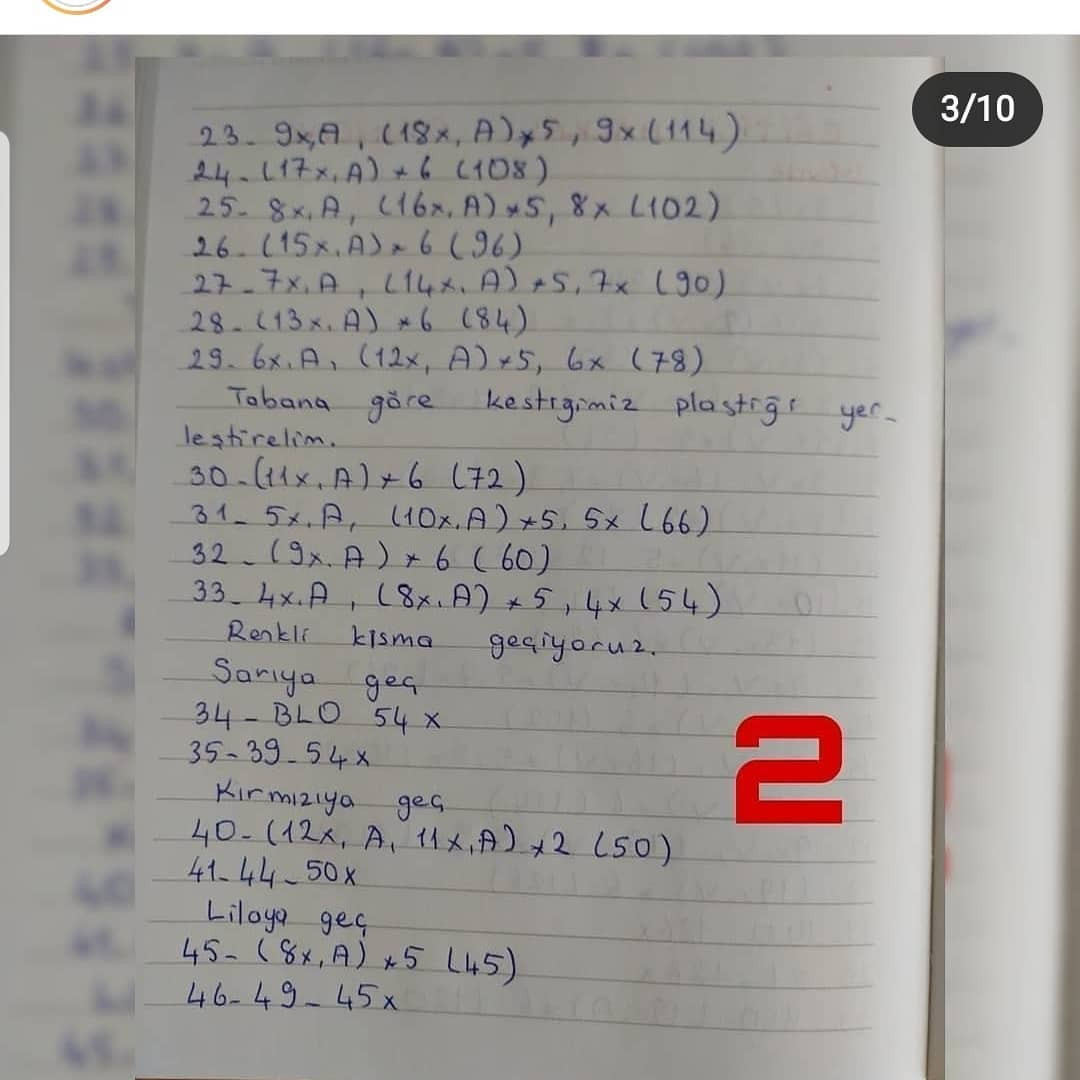 3/10
23- 9x,A, (18x, A)*5, 9x (114)
24- (17x, A) * 6 (108)
25- 8x, A, (16x, A)*5, 8x (102)
26- (15x, A) * 6 (96)
27- 7x, A, (14x, A) *5, 7x (90)
28- (13x, A) *6 (84)
29- 6x, A, (12x, A)*5, 6x (78)
Tabana göre kestiğimiz plastiği yer-
leştirelim.
30- (11x, A) * 6 (72)
31- 5x, A, (10x, A) *5, 5x (66)
32- (9x, A) * 6 (60)
33- 4x, A, (8x, A) *5, 4x (54)
Renkli kısma geçiyoruz.
Sarıya geç
34- BLO 54 x
35-39- 54x
Kırmızıya geç
40- (12x, A, 11x, A) *2 (50)
41-44- 50x
Lilaya geç
45- (8x, A) *5 (45)
46-49- 45x
2